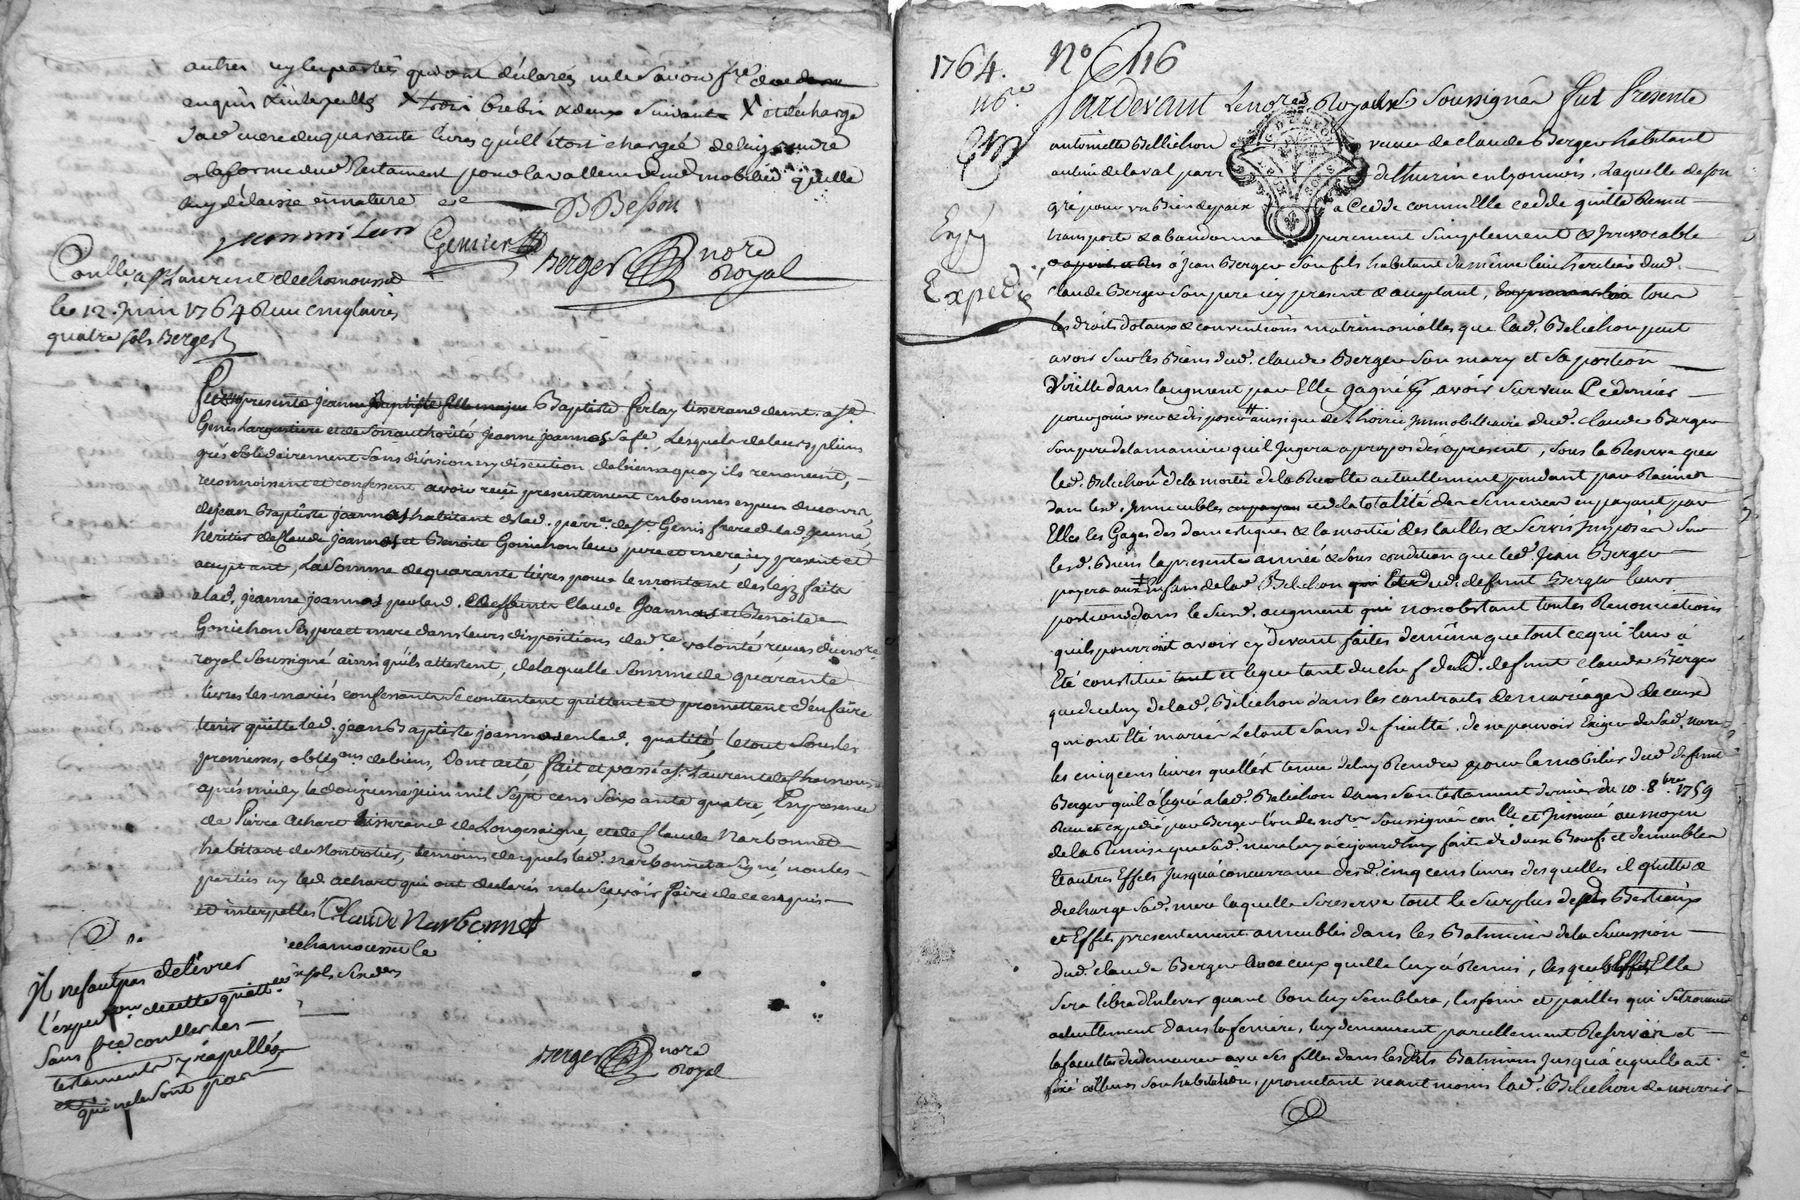 autres icy les parties qui ont déclarés ne le savoir f.re de ce
enquis & interpellés X trois brebis & deux suivants X et décharge
sad. mere de quarante livres qu'il étoit chargé de luy
a la forme dud. testament pour la valleur dud. mobilier qu'elle
luy délaisse en nature
BBesson
Genier
Berger nore
Royal
Conllé a St Laurent de chamousset
le 12 juin 1764 Reçu cinq livres
quatre sols Berger
Fut presente jeanne Baptiste fille majeure Baptiste Ferlay tisserand demt. a St.
Genis Largentiere et de son authorité jeanne joannas sa fe, Lesquels de leurs plein
grés solidairement sans division ny discution de biens a quoy ils renoncent,
reconnoissent et confessent avoir reçu presentement en bonnes especes du cours
de jean Baptiste joannas habitant aud. parr.e de St. Genis frere de lad. jeanne
heritier de Claude joannas et Benoite Gonichon leur pere et mere icy present et
acceptant, La somme de quarante livres pour le montant des legz faits
a lad. jeanne joannas par lesd. deffunts Claude Joannas et Benoite
Gonichon ses pere et mere dans leurs dispositions de d.re volonté reçues du no.re
royal soussigné ainsi quils attestent, de laquelle somme de quarante
livres les mariés confessants se contentent quittent et promettent d'en faire
tenir quitte led. jean Baptiste joannas en lad. qualité, le tout sous les
promesses, oblig.ons de biens, Dont acte, fait et passé a St. Laurent de Chamousset
après midy le douzieme juin mil sept cens soixante quatre, En presence
de Pierre Achart tisserand de Longesaigne, et de Claude Narbonnet
habitant de Montrotier, temoins desquels led. narbonnet a signé, non les
parties ny led. achart qui ont declarés ne le sçavoir faire de ce enquis
et interpellés Claude Narbonnet
de chamousset le
sols six den
il ne faut pas delivrer
l'expedition de cette quitt.ce
sans f.re conller les
testaments y rapellés
et qui ne le sont pas
Berger nore
Royal
1764. No 116
116.e
Pardevant Le nore Royal Soussigné fut Presente
antoinette Bellichon veuve de claude Berger habitant
au lieu de laval parr de thurin en lyonnois, Laquelle de son
gré pour un Bien de paix a Cedé comme Elle cedde quitte Remet
transporte & abandonne purement simplement & Irrevocable
a jean Berger son fils habitant du même lieu heritier dud.
claude Berger son pere icy present & acceptant, tous
Expedié
les droits dotaux & conventions matrimonialles que lad. Belichon peut
avoir sur les Biens dud. claude Berger son mary et sa portion
Virille dans laugment par Elle gagné avoir survécu Ce dernier
pour jouir user & disposer ainsi que de l'hoirie Immobilliaire dud. claude Berger
son pere de la maniere qu'il Jugera a propos dès apresent, sous la Reserve que
lad. Belichon de la moitié de la Recolte actuellement pendant par Racines
dans lesd. Immeubles et de la totalité des Semences en payant par
Elle les Gages des domestiques & la moitié des tailles & Servis Imposés sur
lesd. Biens la presente année & sous condition que led. Jean Berger
payera aux Enfans de lad. Belichon dud. defunt Berger leurs
portions dans le Susd. augment qui nonobstant toutes Renonciations
quils pourroit avoir cy devant faites de même que tout ce qui leur a
Eté constitué et legué tant du chef dud. defunt claude Berger
que de celuy de lad. Belichon dans les contrats de mariage de ceux
qui ont Eté mariés Le tout sans dificulté, de ne pouvoir Exiger de Sad. mere
les cinq cens livres quelle est tenue de luy Rendre pour le mobilier dud. defunt
Berger qu'il a legué a lad. Belichon dans son testament dernier du 10. 8.bre 1759
Reçu et expedié par Berger l'un des no.res soussigné con.llé et Jnsinué au moyen
de la Remise que sad. mere luy a cejourd'huy faite de deux Bœufs et de meubles
& autres Effets Jusqu'a concurrence desd. cinq cens livres desquelles il quitte &
decharge sad. mere laquelle se reserve tout le surplus de ses Bestiaux
et Effets presentement ameublés dans les Batimens de la Succession
dud. claude Berger ceux quelle luy a Remis, lesquels Effets Elle
sera libre d'Enlever quant bon luy semblera, les foins et pailles qui se trouvent
actuellement dans la fenniere, luy demeurent pareillement Reservés et
la faculté de demeurer avec ses filles dans lesdits Batimens Jusqu'a ce quelle ait
fixé ailleurs son habitation, promettant neantmoins lad. Belichon de nourrir